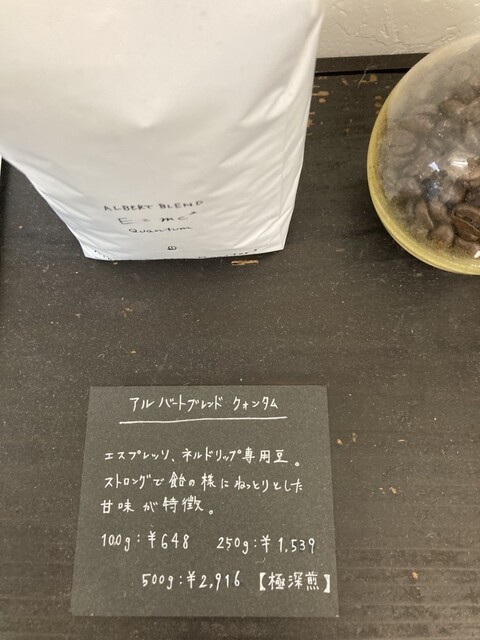 ALBERT BLEND
E = mc²
Quantum
アルバートブレンド クォンタム
エスプレッソ、ネルドリップ専用豆。
ストロングで飴の様にねっとりとした
甘味が特徴。
100g:¥648 250g:¥1,539
500g:¥2,916 【極深煎】